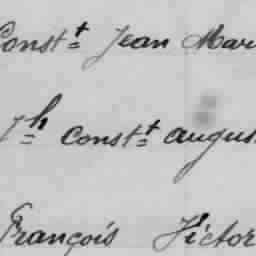 Const.t Jean Mar
Jh Const.t augus
François Victor